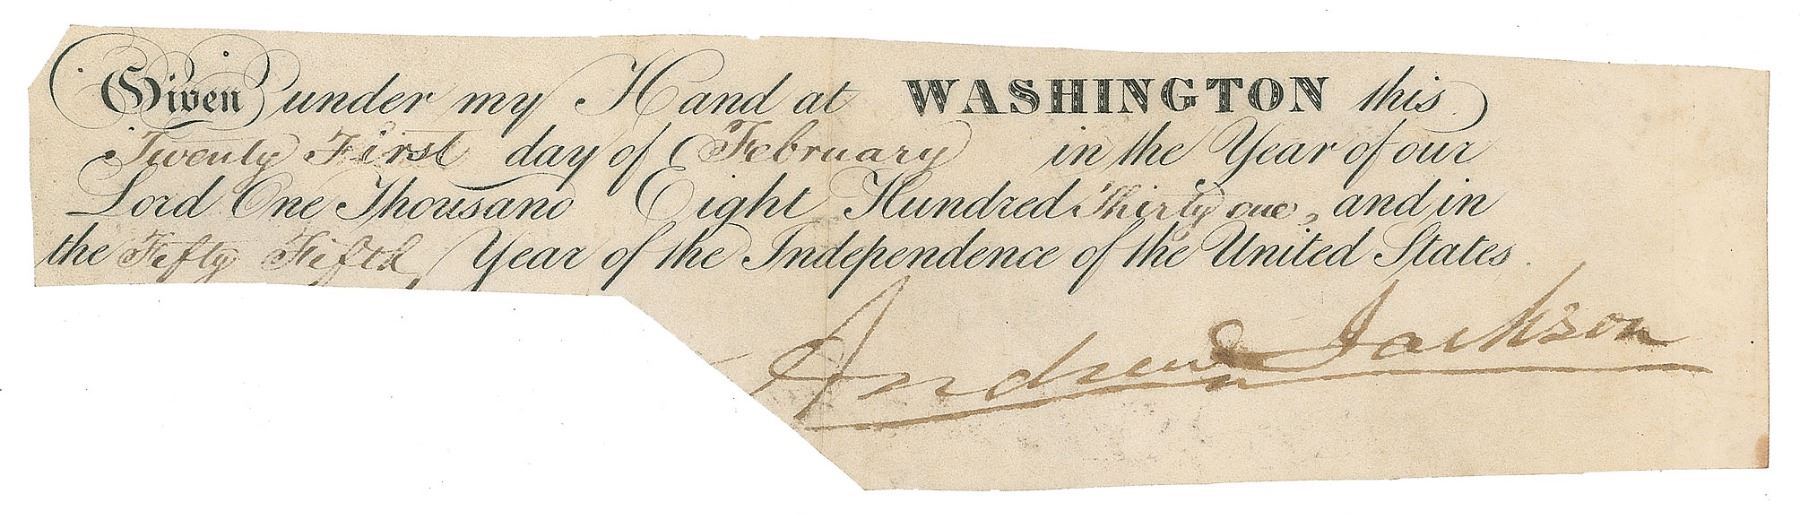 Given under my Hand at WASHINGTON this
Twenty First day of February in the Year of our
Lord One Thousand Eight Hundred Thirty one, and in
the Fifty Fifth Year of the Independence of the United States.
Andrew Jackson